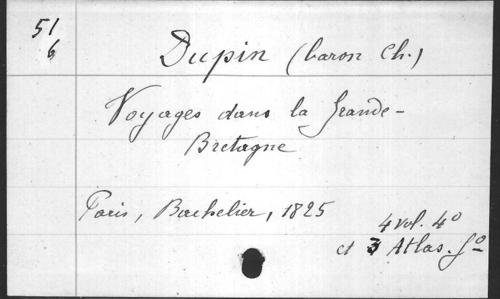 51
6
Dupin (baron Ch.)
Voyages dans la Grande-
Bretagne
Paris, Bachelier, 1825
4 vol. 4º
et 3 Atlas. fº